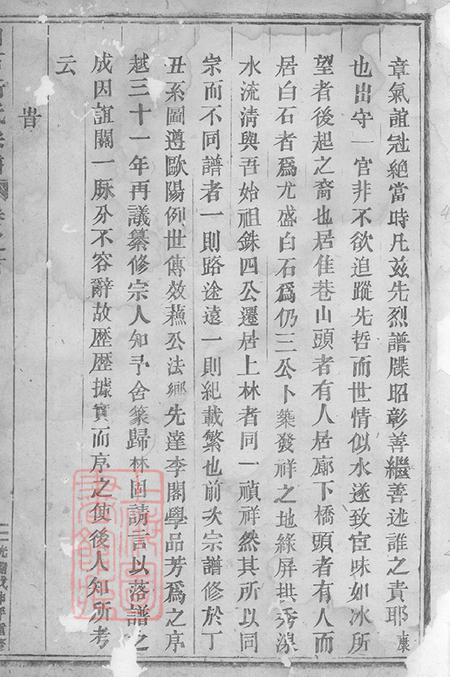 章氣誼冠絶當時凡茲先烈譜牒昭彰善繼善述誰之責耶康
也出守一官非不欲追蹤先哲而世情似水遂致宦味如冰所
望者後起之裔也居佳巷山頭者有人居廓下橋頭者有人而
居白石者爲尤盛白石爲仍三公卜築發祥之地綠屏拱秀
水流清與吾始祖銖四公遷居上林者同一禎祥然其所以同
宗而不同譜者一則路途遠一則紀載繁也前次宗譜修於丁
丑系圖遵歐陽例世傳效蘓公法鄉先達李閣學品芳爲之序
越三十一年再議纂修宗人知予舍篆歸林固請言以落譜之
成因誼關一脉分不容辭故歷歷據實而序之使後人知所考
云
旹